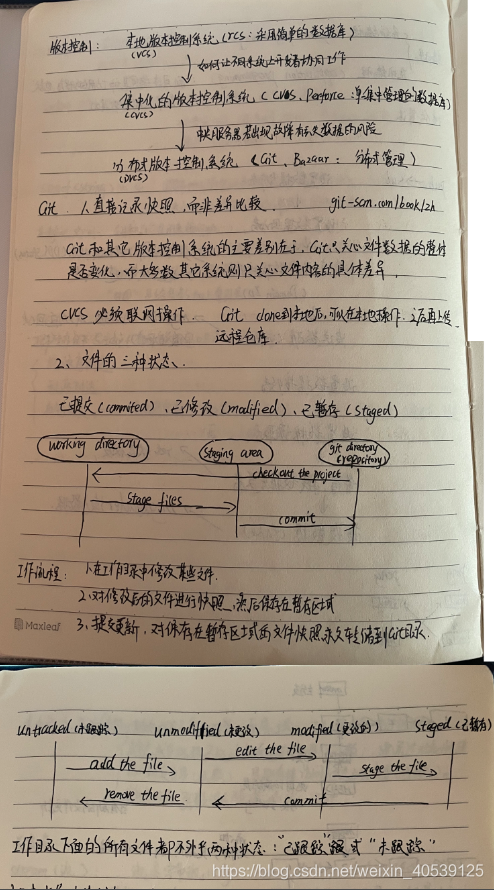 版本控制: 本地版本控制系统 (RCS: 采用简单的数据库)
(VCS)
如何让不同系统上开发者协同工作
集中化的版本控制系统 (CVS、Perforce: 单集中管理的数据库)
(CVCS)
中央服务器若出现故障有丢数据的风险
分布式版本控制系统 (Git、Bazaar: 分布式管理)
(DVCS)
Git 1.直接记录快照,而非差异比较 git-scm.com/book/zh
Git和其它版本控制系统的主要差别在于,Git只关心文件数据的整体
是否变化,而大多数其它系统则只关心文件内容的具体差异.
CVCS 必须联网操作. Git clone到本地后,可以在本地操作.之后再上传
远程仓库.
2、文件的三种状态.
已提交(commited)、已修改(modified)、已暂存(staged)
working directory staging area git directory
(repository)
checkout the project
stage files
commit
工作流程: 1、在工作目录中修改某些文件.
2.对修改后的文件进行快照,然后保存在暂存区域
3、提交更新,对保存在暂存区域的文件快照永久转储到Git目录.
Maxleaf
untracked(未跟踪) unmodified(未更改) modified(更改的) staged(已暂存)
edit the file
add the file stage the file
remove the file commit
工作目录下面的所有文件都不外乎两种状态:"已跟踪"或"未跟踪"
https://blog.csdn.net/weixin_40539125